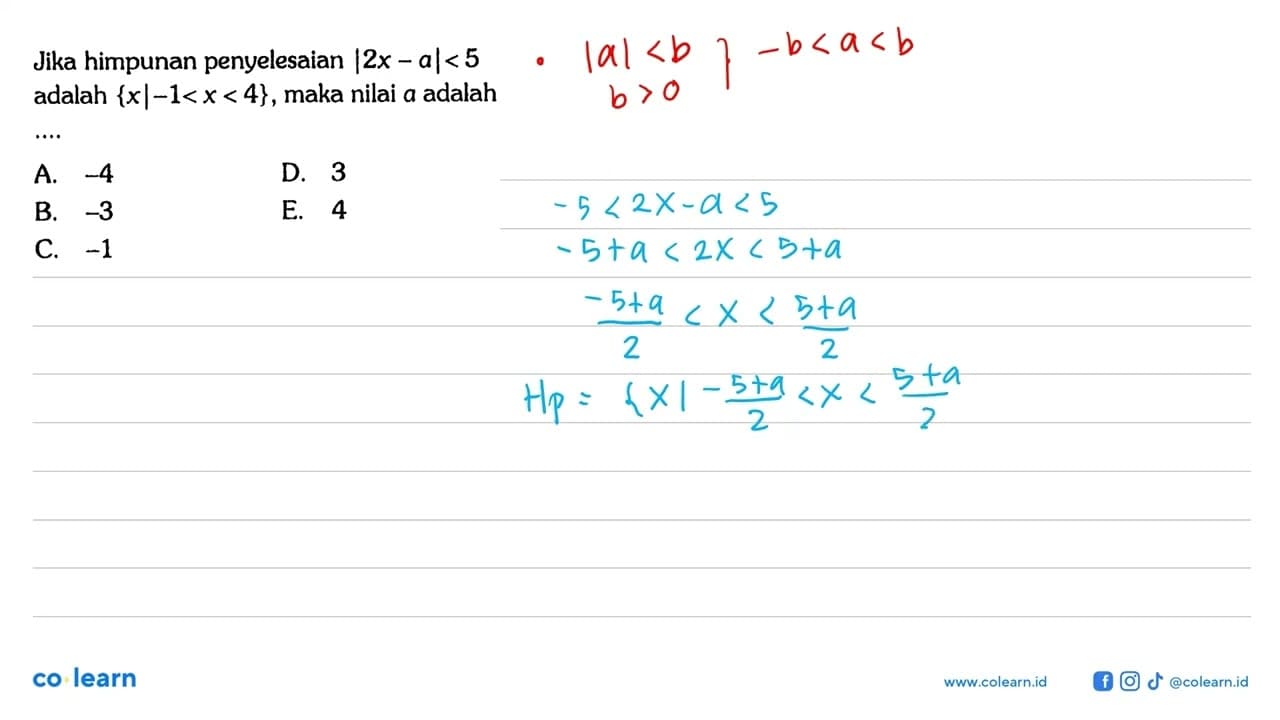 Jika himpunan penyelesaian |2x – a| < 5
adalah {x|–1 < x < 4}, maka nilai a adalah
....
A. –4
B. –3
C. –1
D. 3
E. 4
• |a| < b } –b < a < b
b > 0
-5 < 2x - a < 5
-5+a < 2x < 5+a
\frac{-5+a}{2} < x < \frac{5+a}{2}
Hp = {x| -\frac{5+a}{2} < x < \frac{5+a}{2}
co learn
www.colearn.id
@colearn.id